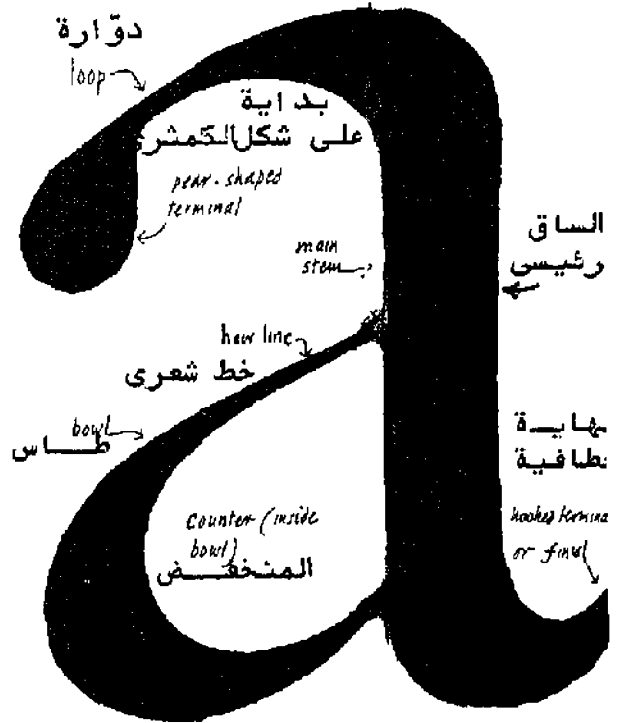 دوّارة
loop
بداية
على شكل الكمثرى
pear-shaped
terminal
main
stem
الساق
رئيسى
hair line
خط شعرى
bowl
طاس
counter (inside
bowl)
المنخفض
هاية
طافية
hooked termina
or final
a